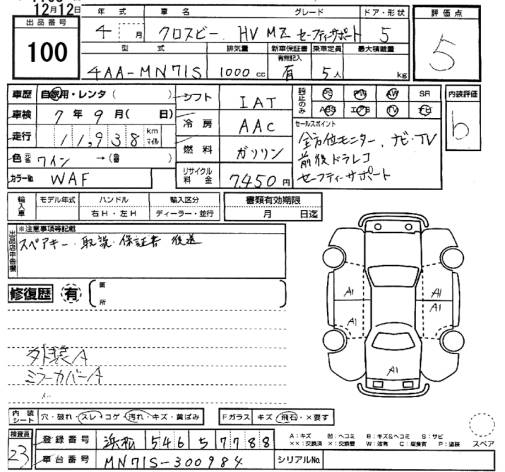 12月12日
出品番号 100
年式 4年 月
車名 クロスビー HV MZ セーフティサポート
グレード
ドア・形状 5
評価点 5
型式 4AA-MN71S
排気量 1000 cc
新車保証書 有無記入 有
乗車定員 5人
最大積載量 kg
車歴 自家用・レンタ( )
シフト IAT
車検 7年 9月( 日)
冷房 AAC
走行 11,938 km マイル
燃料 ガソリン
色 ワイン →(替 )
リサイクル料金 7,450円
カラー番号 WAF
装備のみ PS PW AW SR
ABS エアB TV ナビ
内装評価 b
セールスポイント
全方位モニター、ナビ・TV
前後ドラレコ
セーフティサポート
輸入車
モデル年式 ハンドル 輸入区分
右H・左H ディーラー・並行
書類有効期限
月 日迄
出品店申告欄
※注意事項等記載
スペアキー 取説 保証書 後送
修復歴 有
箇所
A1 A1
A1 A1
A1
外装A
ミラーカバーA
内装シート 穴・破れ・スレ・コゲ・汚れ・キズ・黄ばみ
Fガラス キズ・飛石・×要す
スペア
検査員 23
登録番号 浜松 546 そ 7788
A:キズ U:凹み B:キズ&ヘコミ S:サビ
××:交換済 X:交換要 W:補修 C:腐食有 P:塗装
車台番号 MN71S-300984
シリアルNo.